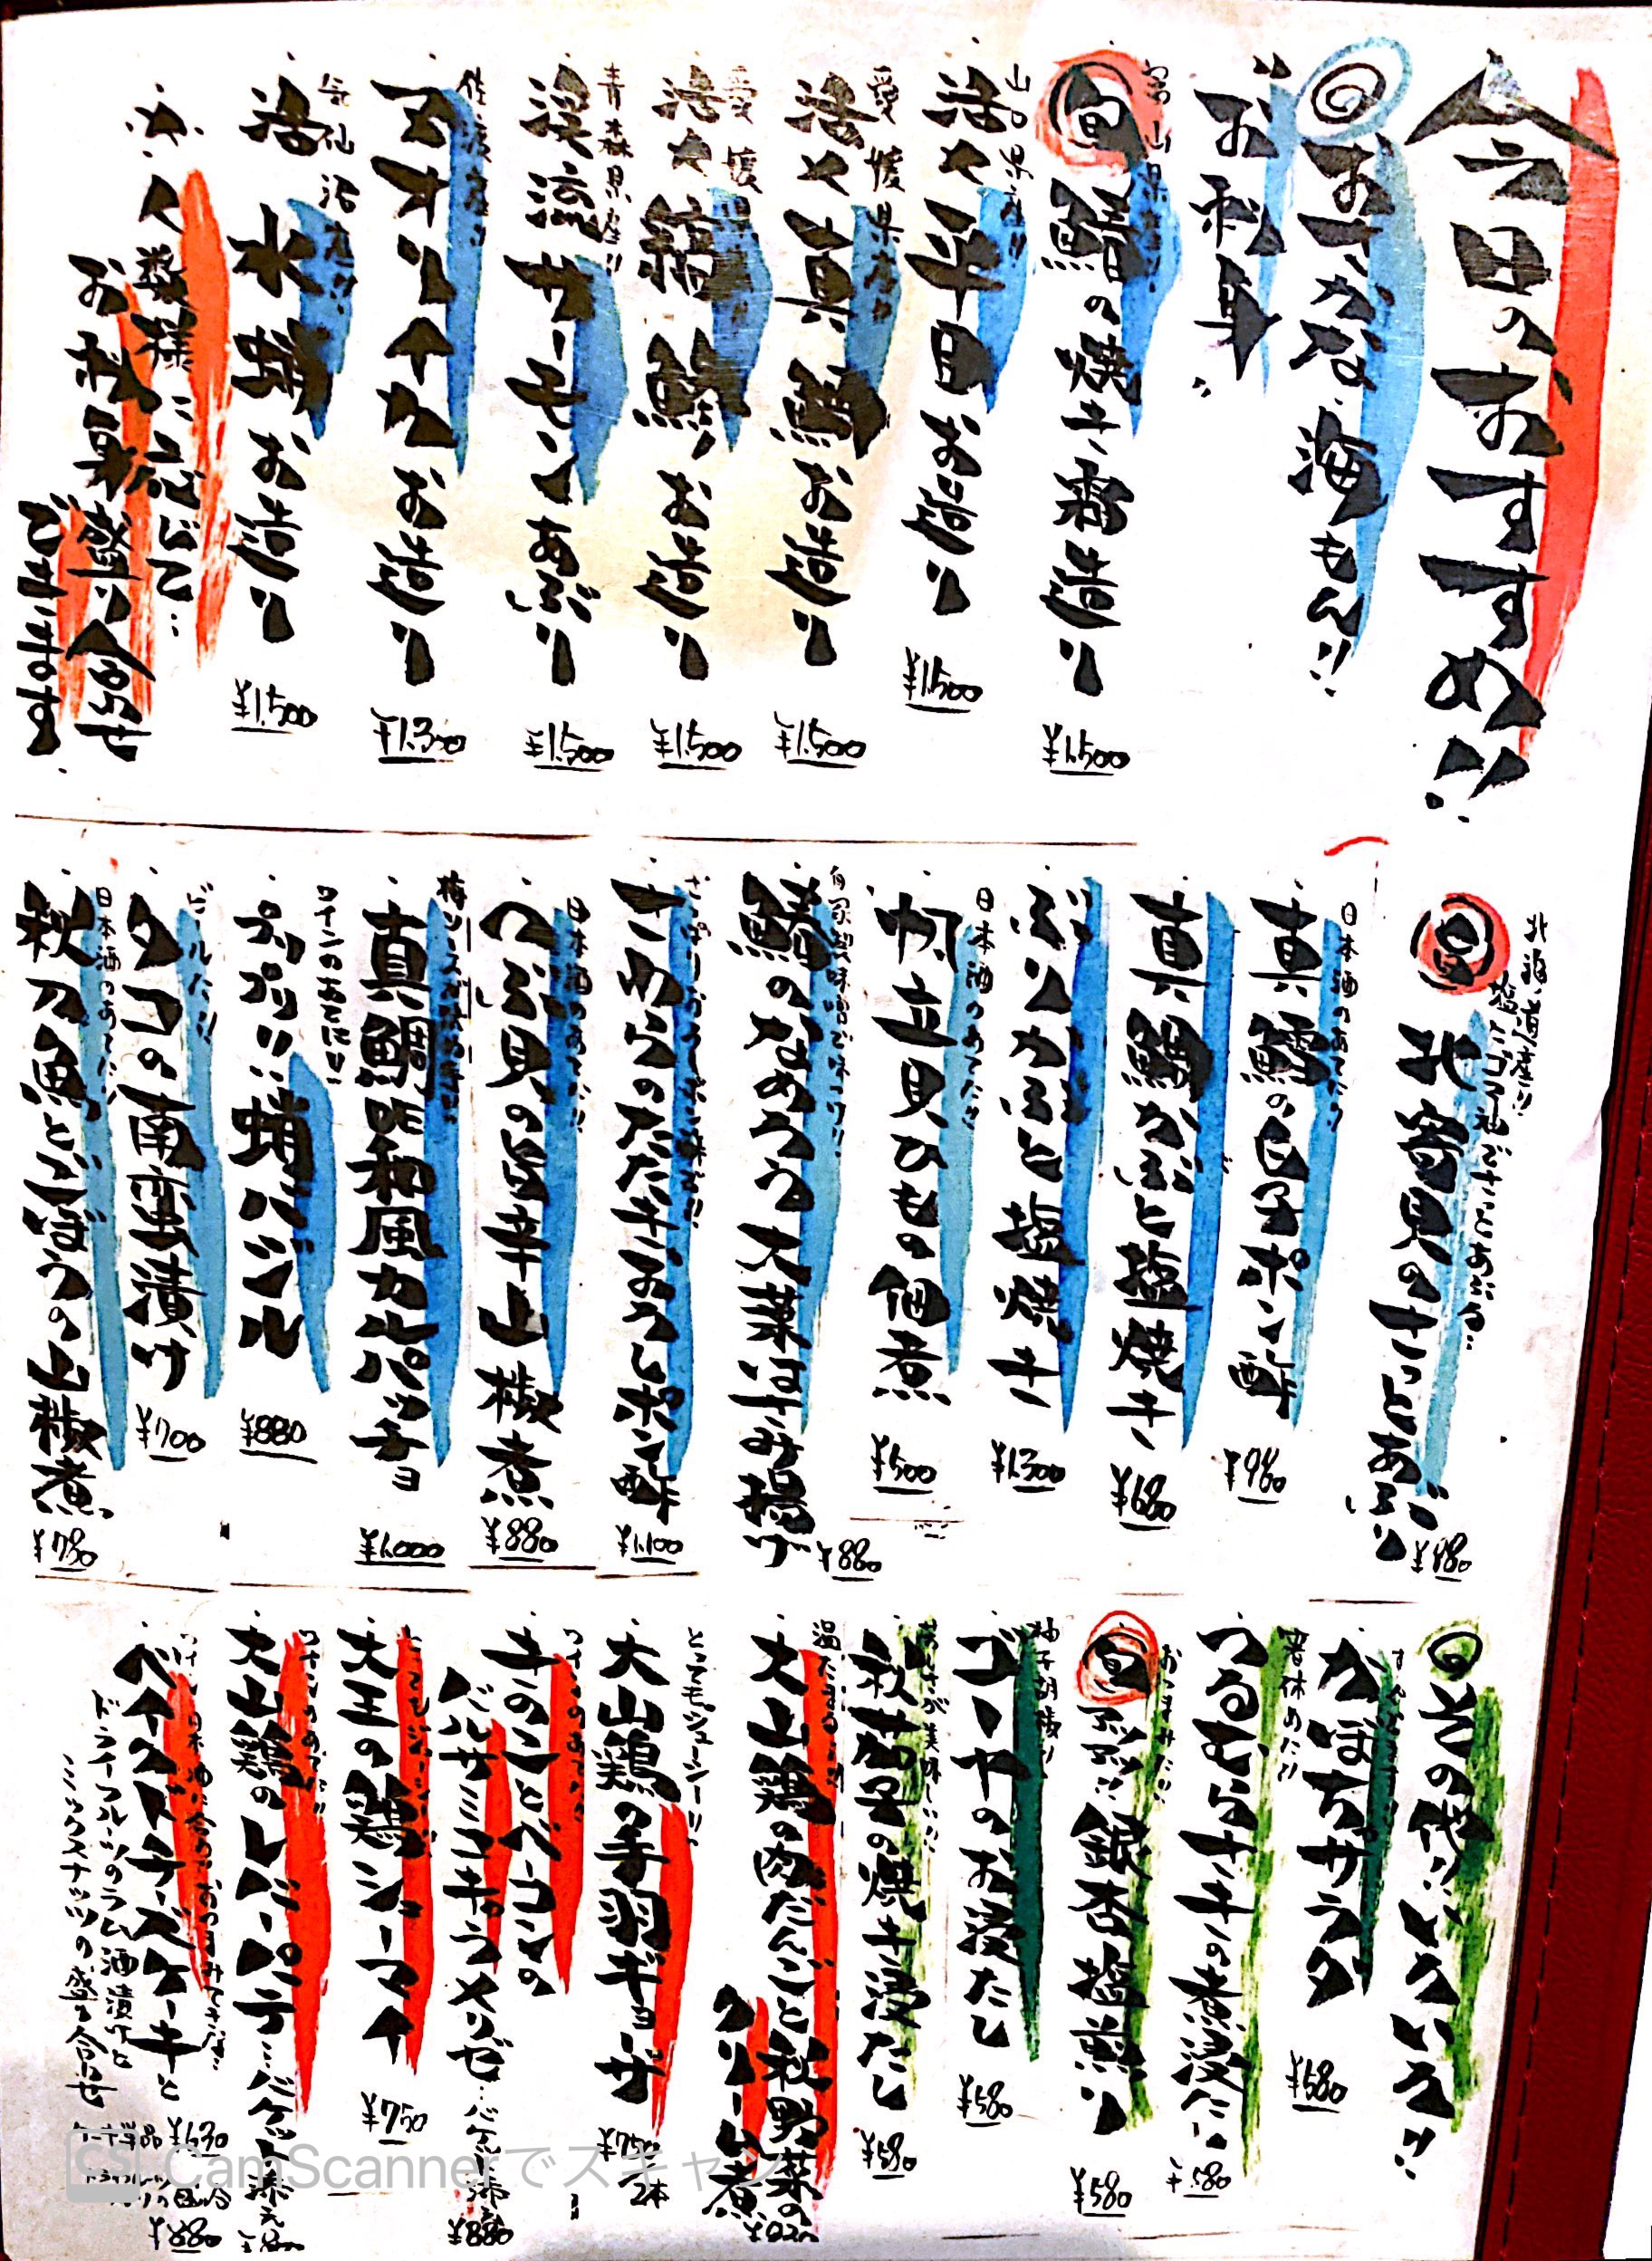 今日のおすすめ!!
おさかな・海もん!!
"お刺身"
富山県産!!
旬 鰆の焼き霜造り
¥1,500
山口県産!!
活〆平目お造り
¥1,500
愛媛県産!!
活〆真鯛お造り
¥1,500
愛媛
活〆縞鯵お造り
¥1,500
青森県産!!
渓流サーモンあぶり
¥1,500
佐渡産!!
アオリイカお造り
¥1,300
気仙沼産!!
活水蛸お造り
¥1,500
人数様に応じて…
お刺身盛り合せ
できます
北海道産!!
旬 北寄貝のさっとあぶり
¥980
日本酒のあてに!!
真鱈の白子ポン酢
¥980
真鯛かぶと塩焼き
¥680
ぶりかぶと塩焼き
¥1,300
日本酒のあてに!!
帆立貝ひもの佃煮
¥500
鯵のなめろう大葉はさみ揚げ
¥880
さわらのたたきおろしポン酢
¥1,100
日本酒のあてに!!
つぶ貝の旨辛山椒煮
¥880
真鯛昆布〆和風カルパッチョ
¥1,000
ワインのおともに!!
プリプリ!!蛸バジル
¥880
ビールに!!
タコの南蛮漬け
¥700
日本酒のあてに!!
秋刀魚とごぼうの山椒煮
¥780
その代!!いろいろ!!
かぼちゃサラダ
¥580
箸休めに!!
つるむらさきの煮浸し
¥580
おつまみに!!
旬 銀杏塩煎り
¥580
柚子胡椒
ゴーヤのお浸たし
¥580
秋茄子の焼き浸たし
¥580
大山鶏の肉だんごと秋野菜の
クリーム煮
とってもジューシー!!
大山鶏の手羽ギョーザ
¥750
2本
きのことベーコンの
バルサミコキャラメリゼ…バケット添え
¥880
大玉の鶏シューマイ
¥750
大山鶏のレバーパテ…バケット添え
ベイクドチーズケーキと
ドライフルーツのラム酒漬けと
ミックスナッツの盛り合せ
ケーキ単品 ¥630
¥880
CamScannerでスキャン